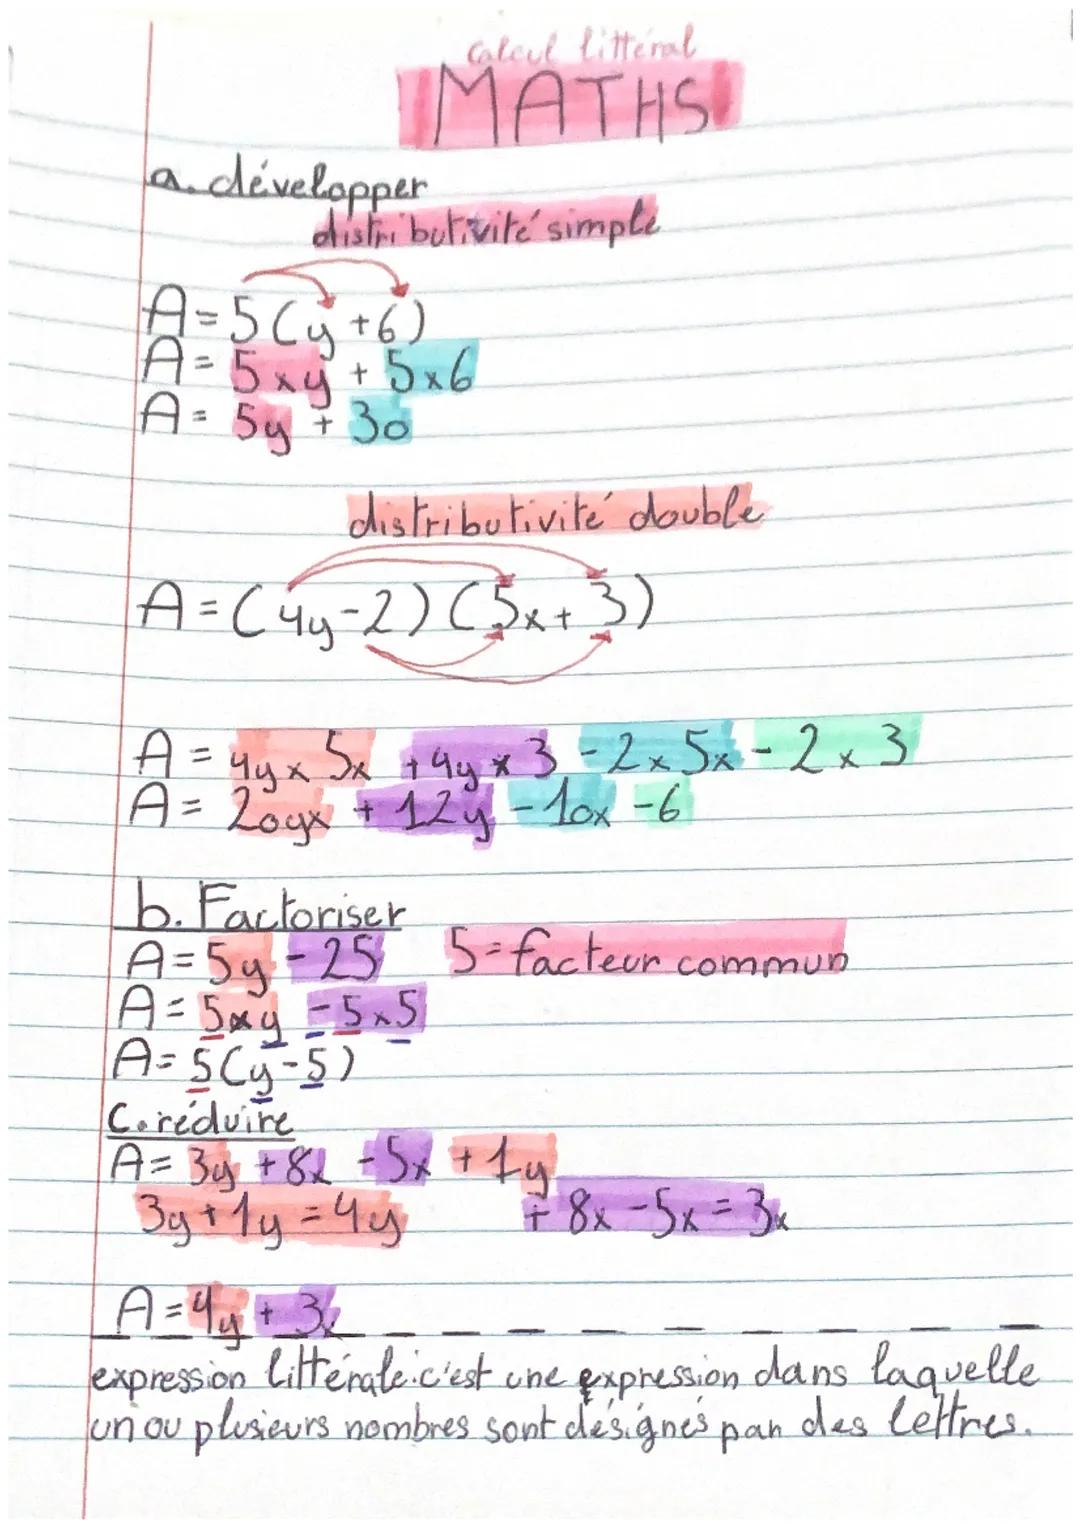 Calcul littéral
MATHS
a. développer
distributivité simple
A = 5 (y + 6)
A = 5 x y + 5 x 6
A = 5y + 30
distributivité double
A = (4y - 2) (5x + 3)
A = 4y x 5x + 4y x 3 - 2 x 5x - 2 x 3
A = 20yx + 12y - 10x - 6
b. Factoriser
A = 5y - 25 5 = facteur commun
A = 5 x y - 5 x 5
A = 5 (y - 5)
C. réduire
A = 3y + 8x - 5x + 1y
3y + 1y = 4y + 8x - 5x = 3x
A = 4y + 3x
expression littérale: c'est une expression dans laquelle
un ou plusieurs nombres sont désignés par des lettres.